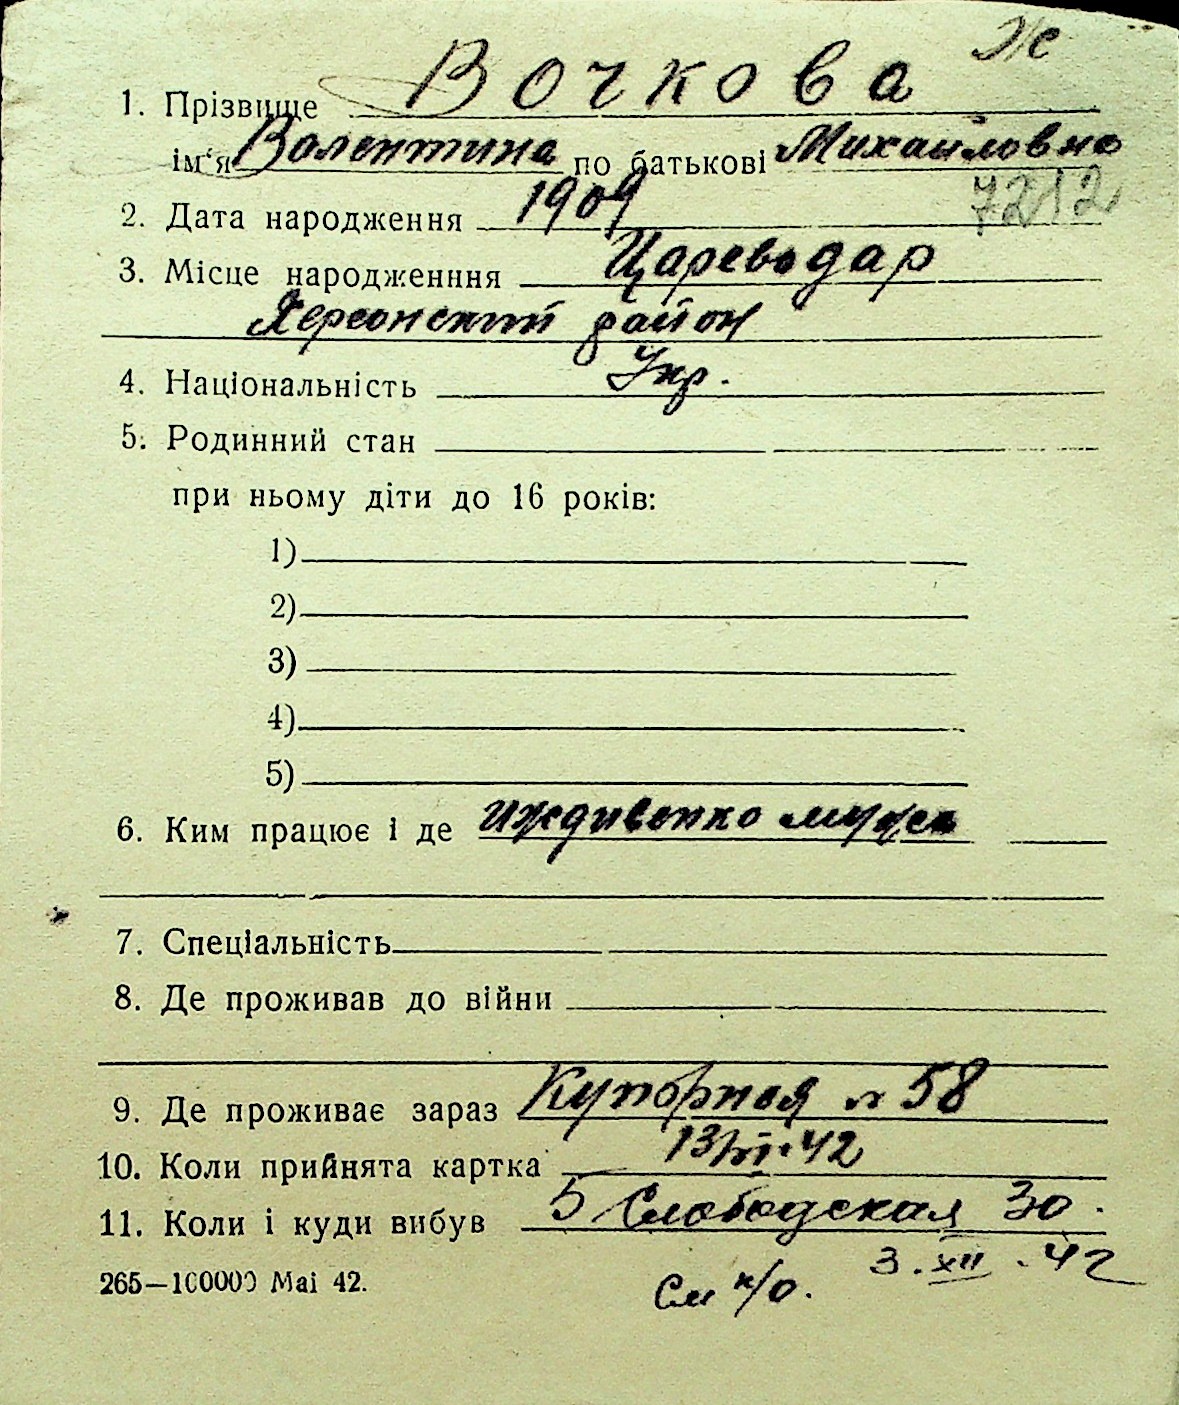 Ж
1. Прізвище Вочкова
ім'я Валентина по батькові Михайловна
7212
2. Дата народження 1909
3. Місце народженння Цареводар
Херсонский район
4. Національність Укр.
5. Родинний стан
при ньому діти до 16 років:
1)
2)
3)
4)
5)
6. Ким працює і де иждивенка мужа
7. Спеціальність
8. Де проживав до війни
9. Де проживає зараз Купорная № 58
10. Коли прийнята картка 13/VI.42
11. Коли і куди вибув 5 Слободская 30.
3.XII.42
265—100000 Mai 42.
См н/о.